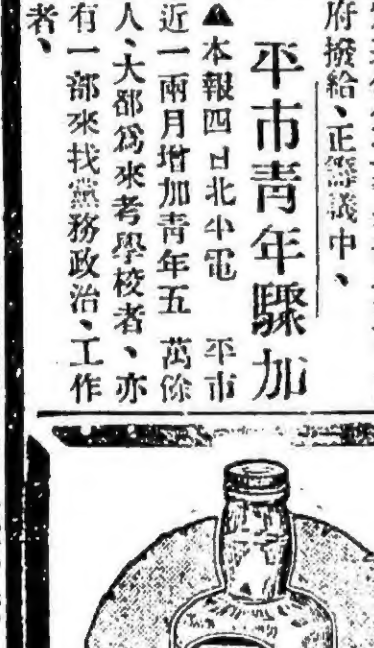 府撥給、正籌議中、
平市青年驟加
▲本報四日北平電　平市
近一兩月增加青年五萬餘
人、大都爲來考學校者、亦
有一部來找黨務政治、工作
者、